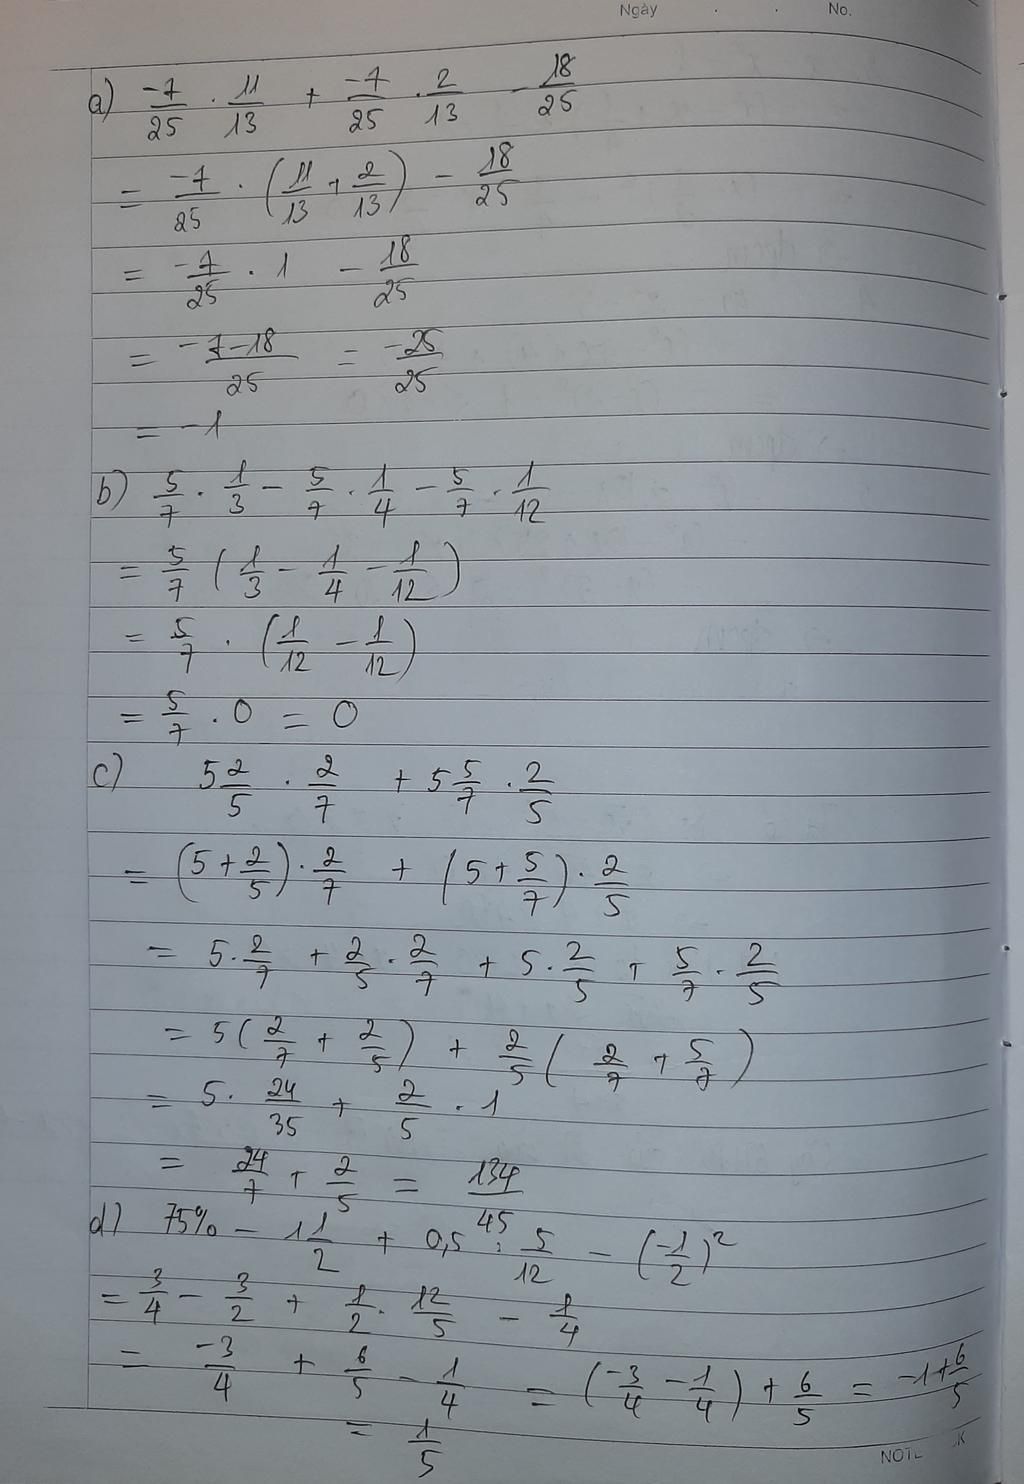 Ngày . . No.
a) -7/25 . 11/13 + -7/25 . 2/13 - 18/25
= -7/25 . (11/13 + 2/13) - 18/25
= -7/25 . 1 - 18/25
= -7-18/25 = -25/25
= -1
b) 5/7 . 1/3 - 5/7 . 1/4 - 5/7 . 1/12
= 5/7 (1/3 - 1/4 - 1/12)
= 5/7 . (1/12 - 1/12)
= 5/7 . 0 = 0
c) 5 2/5 . 2/7 + 5 5/7 . 2/5
= (5 + 2/5) . 2/7 + (5 + 5/7) . 2/5
= 5 . 2/7 + 2/5 . 2/7 + 5 . 2/5 + 5/7 . 2/5
= 5 (2/7 + 2/5) + 2/5 (2/7 + 5/7)
= 5 . 24/35 + 2/5 . 1
= 24/7 + 2/5 = 134/45
d) 75% - 1 1/2 + 0,5 : 5/12 - (-1/2)²
= 3/4 - 3/2 + 1/2 . 12/5 - 1/4
= -3/4 + 6/5 - 1/4 = (-3/4 - 1/4) + 6/5 = -1 + 6/5
= 1/5